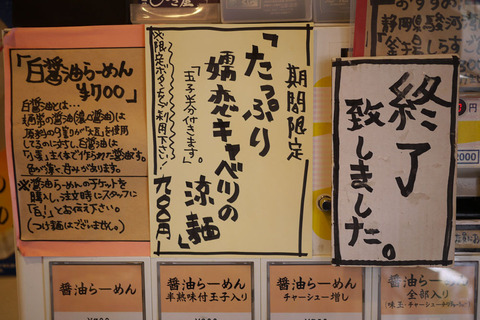 「白醤油らーめん
¥700」
白醤油とは…
通常の醤油(濃口醤油)は
原料の割合が「大豆」を使用
してるのに対し、白醤油は
「小麦」主体で作られた醤油です。
※醤油らーめんのチケットを
購入し、注文時にスタッフに
「白!」とお伝え下さい。
(つけ麺はございません。)
期間限定
「たっぷり
嬬恋キャベツの
涼麺」
九〇〇円
「玉子半分付きます。」
※限定ボタンをご利用下さい!
終了
致しました。
おすすめ
静岡県駿河湾
釜上げしらす
2000
醤油らーめん
醤油らーめん
半熟味付玉子入り
醤油らーめん
チャーシュー増し
醤油らーめん
全部入り